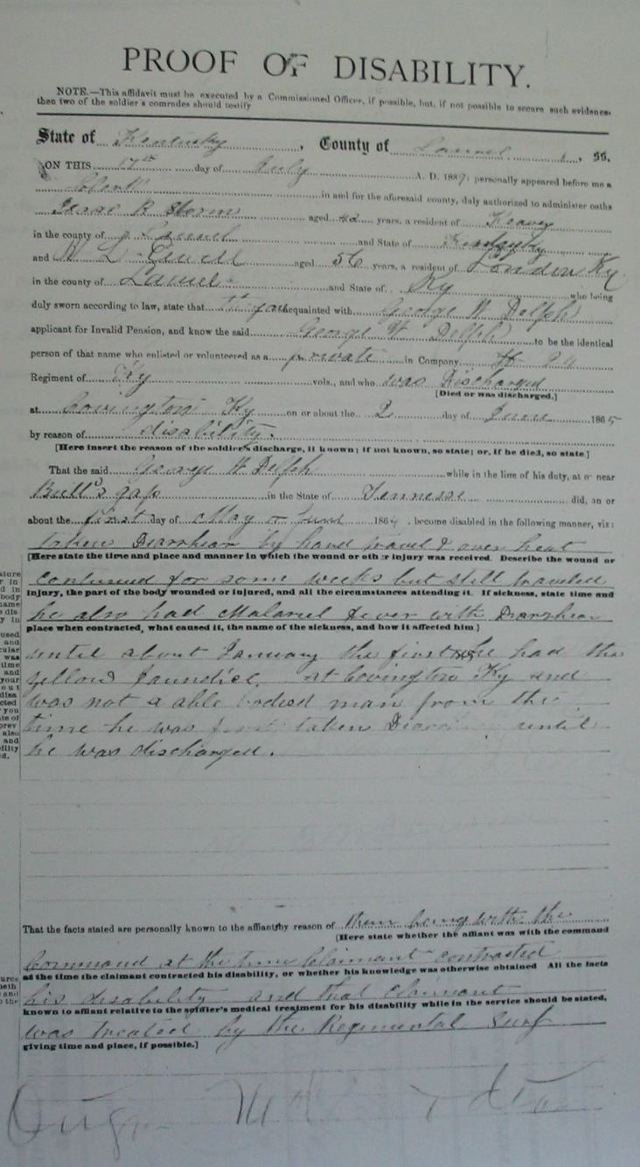 PROOF OF DISABILITY.
NOTE.—This affidavit must be executed by a Commissioned Officer, if possible, but, if not possible to secure such evidence,
than two of the soldier's comrades should testify
State of Kentucky, County of Laurel, ss.
ON THIS 17th day of July A. D. 1889, personally appeared before me a
Clerk in and for the aforesaid county, duly authorized to administer oaths
Isaac R Storm aged 42 years, a resident of
in the county of Laurel and State of Kentucky
and aged 56 years, a resident of London Ky
in the county of Laurel and State of Ky who being
duly sworn according to law, state that acquainted with George W Delph
applicant for Invalid Pension, and know the said George W Delph to be the identical
person of that name who enlisted or volunteered as a private in Company H 24
Regiment of Ky vols., and who was Discharged
[Died or was discharged.]
at Covington Ky on or about the 2 day of June 1865
by reason of disability.
[Here insert the reason of the soldier's discharge, if known; if not known, so state; or, if he died, so state.]
That the said George W Delph while in the line of his duty, at or near
Bull's gap in the State of Tennesse did, on or
about the first day of May or June 1864, become disabled in the following manner, viz:
taken Diarrhear by hard travel & over heat
[Here state the time and place and manner in which the wound or other injury was received. Describe the wound or
continued for some weeks but still traveled
injury, the part of the body wounded or injured, and all the circumstances attending it. If sickness, state time and
he also had Malariel fever with Diarrhea
place when contracted, what caused it, the name of the sickness, and how it affected him.]
until about January the first he had the
yellow Jaundice. at Covington Ky and
was not a able bodied man from the
time he was first taken until
he was discharged.
That the facts stated are personally known to the affiant by reason of them being with the
[Here state whether the affiant was with the command
Command at the time Claimant contracted
at the time the claimant contracted his disability, or whether his knowledge was otherwise obtained All the facts
his disability and that claimant
known to affiant relative to the soldier's medical treatment for his disability while in the service should be stated,
was treated by the Regimental Surg
giving time and place, if possible.]